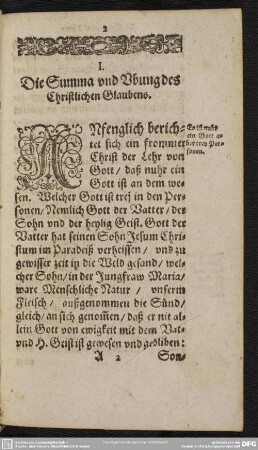 2
I.
Die Summa vnd Vbung des
Christlichen Glaubens.
ANfenglich berich-
tet sich ein frommer
Christ der Lehr von
Gott / daß nuhr ein
Gott ist an dem we-
sen. Welcher Gott ist trej in den Per-
sonen / Nemlich Gott der Vatter / der
Sohn vnd der heylig Geist. Gott der
Vatter hat seinen Sohn Jesum Chri-
stum im Paradeiß verheissen / vnd zu
gewisser zeit in die Welt gesand / wel-
cher Sohn / in der Jungfraw Maria /
ware Menschliche Natur / vnserm
Fleisch / außgenommen die Sünd /
gleich / an sich genom̃en / daß er nit al-
lein Gott von ewigkeit mit dem Vat-
vnd H. Geist ist gewesen vnd geblieben:
A 2 Son-
Es ist nuhr
ein Gott
ber trey Per-
sonen.